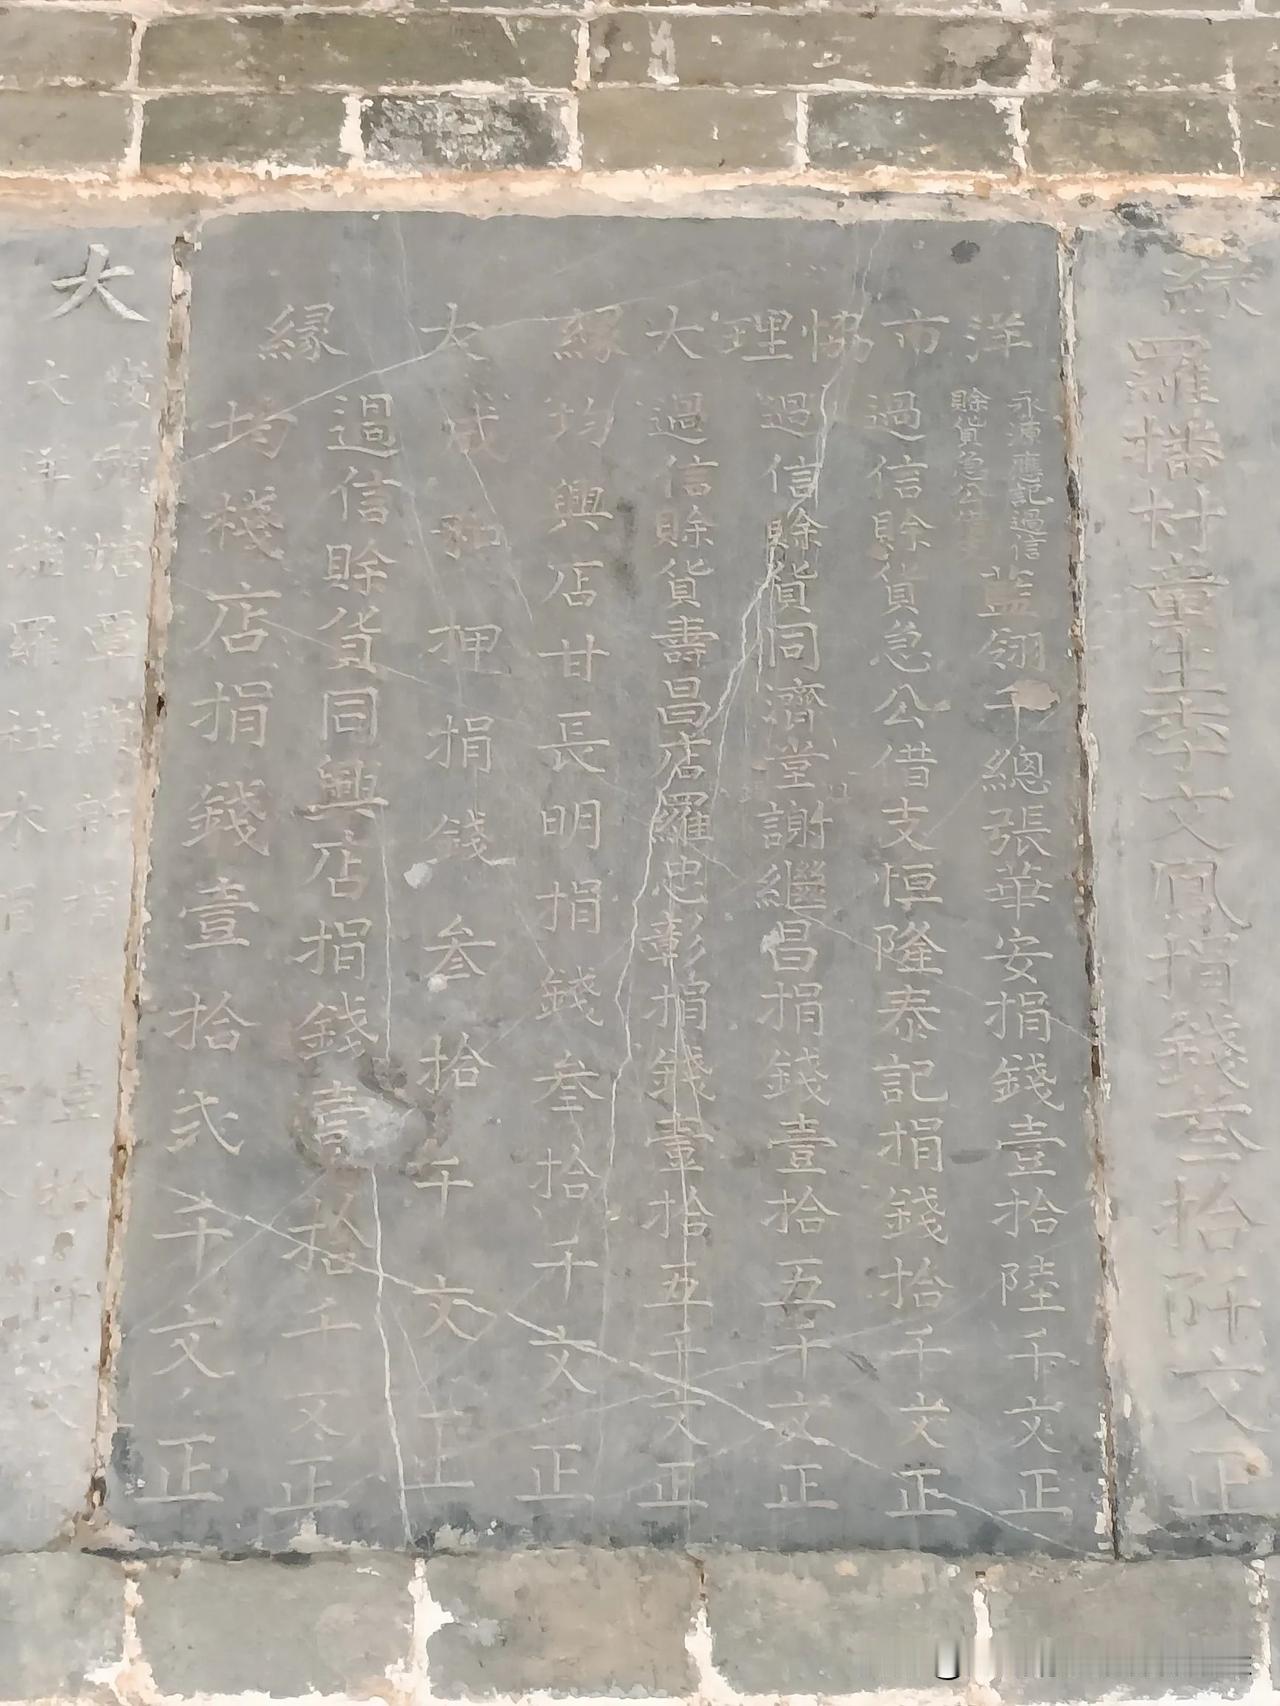 緣
羅播村童生李文鳳捐錢叁拾阡文正
洋市協理大緣大緣
永源應記過信
賖貨急公借支
藍翎千總張華安捐錢壹拾陸千文正
過信賖貨急公借支恒隆泰記捐錢拾千文正
過信賖貨同濟堂謝繼昌捐錢壹拾五千文正
過信賖貨壽昌店羅忠彰捐錢壹拾五千文正
均興店甘長明捐錢叁拾千文正
咸和押捐錢叁拾千文正
過信賖貨同興店捐錢壹拾千文正
均棧店捐錢壹拾弍千文正
大